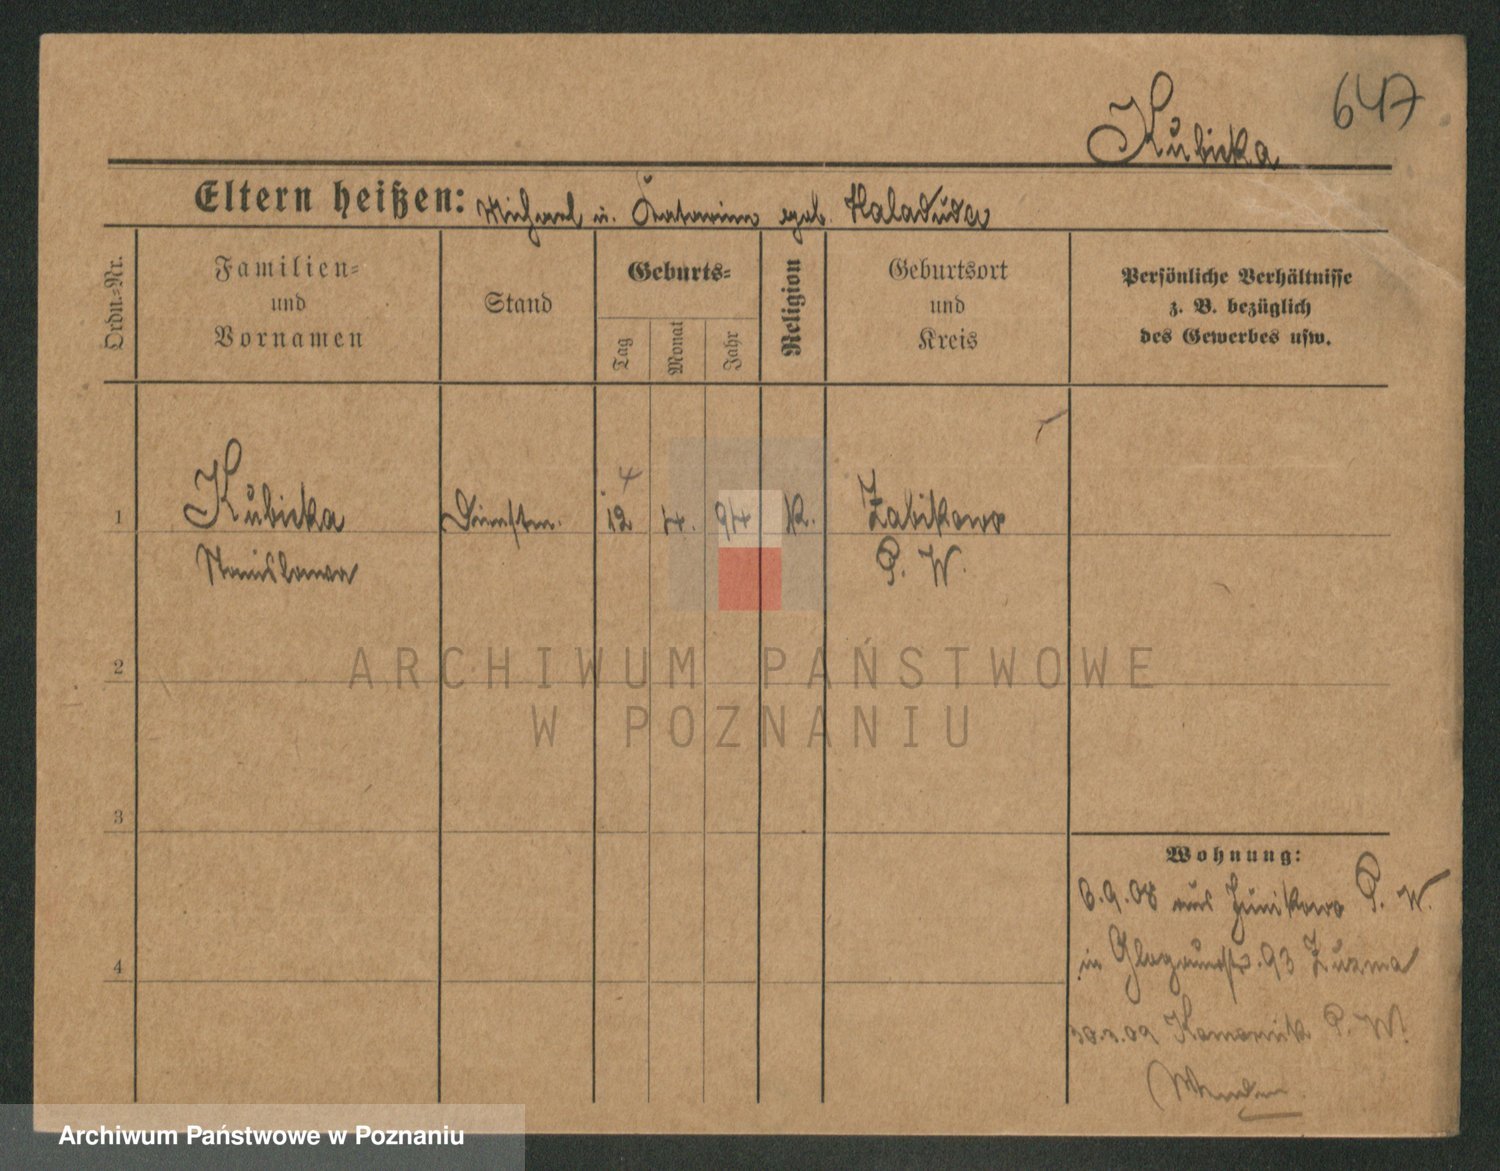 647
Kubicka
Eltern heißen: Michael u. Katarina geb. Haladuda
Ordn.-Nr.
Familien- und Vornamen
Stand
Geburts-
Tag
Monat
Jahr
Religion
Geburtsort und Kreis
Persönliche Verhältnisse z. B. bezüglich des Gewerbes usw.
4
1 Kubicka Dienstm. 12 4. 94 K. Zabikowo
Stanislawa P. W.
ARCHIWUM PAŃSTWOWE
W POZNANIU
2
3
4
Wohnung:
6.9.08 aus Junikowo P. W.
in Glogauerstr. 93
30.3.09 P. W.
Archiwum Państwowe w Poznaniu